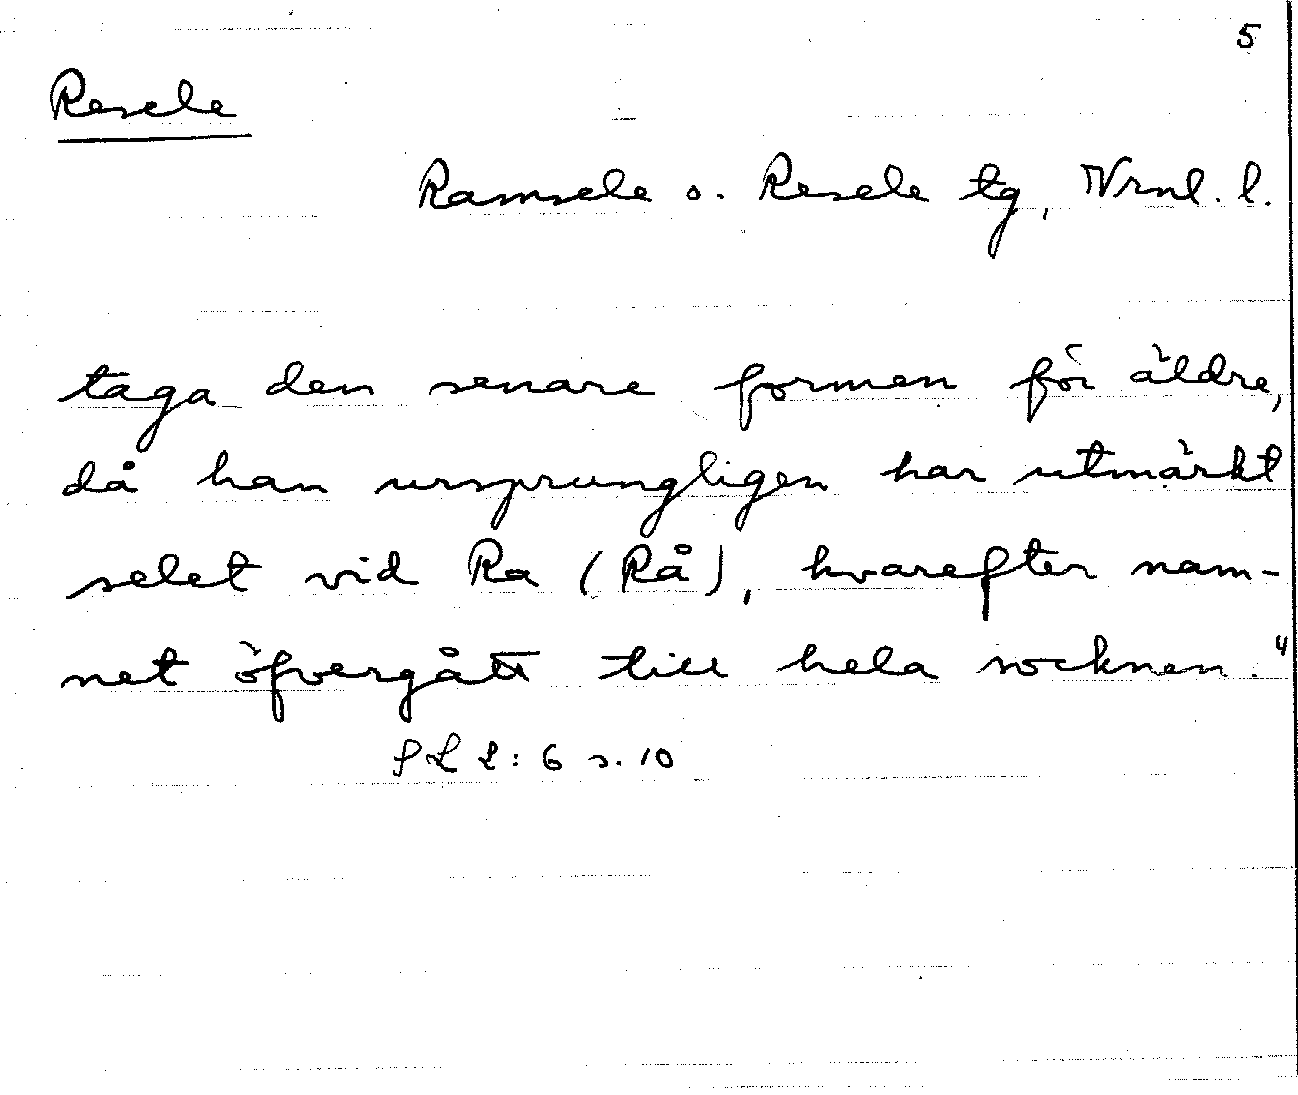 5
Resele
Ramsele o. Resele tg, Vrnl. l.
taga den senare formen för äldre,
då han ursprungligen har utmärkt
selet vid Ra (Rå), hvarefter nam-
net öfvergått till hela socknen."
SL 2:6 s. 10